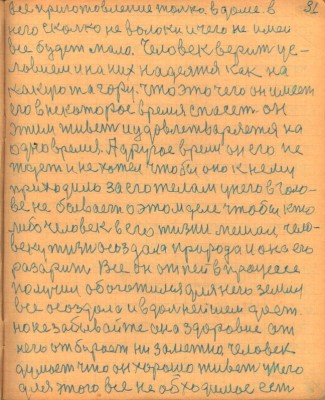 31
все приготовление только в доме. в
него сколко не волоки ичего не имей
все будет мало. Человек верит ус-
ловием и на них надеятся как на
какуюта гору. Что это чего он имеет
его внекоторое время спасет. он
этим живет и удовлетваряется на
одно время. А другое время он его не
ждет и не хотел чтобы оно к нему
приходило за его телам унего в голо-
ве не бывает о этом деле чтобы кто
либо человек в его жизни мешал чело-
веку жизни создала природа и она его
разарит. Все он от ней в процессе
получил обоготился для него земли
все создала и вдолнейшем дает.
но незабывайте она здоровие от
него отбирает ни заметна человек
думает что он хорошо живет унего
для этого все необходимое есть